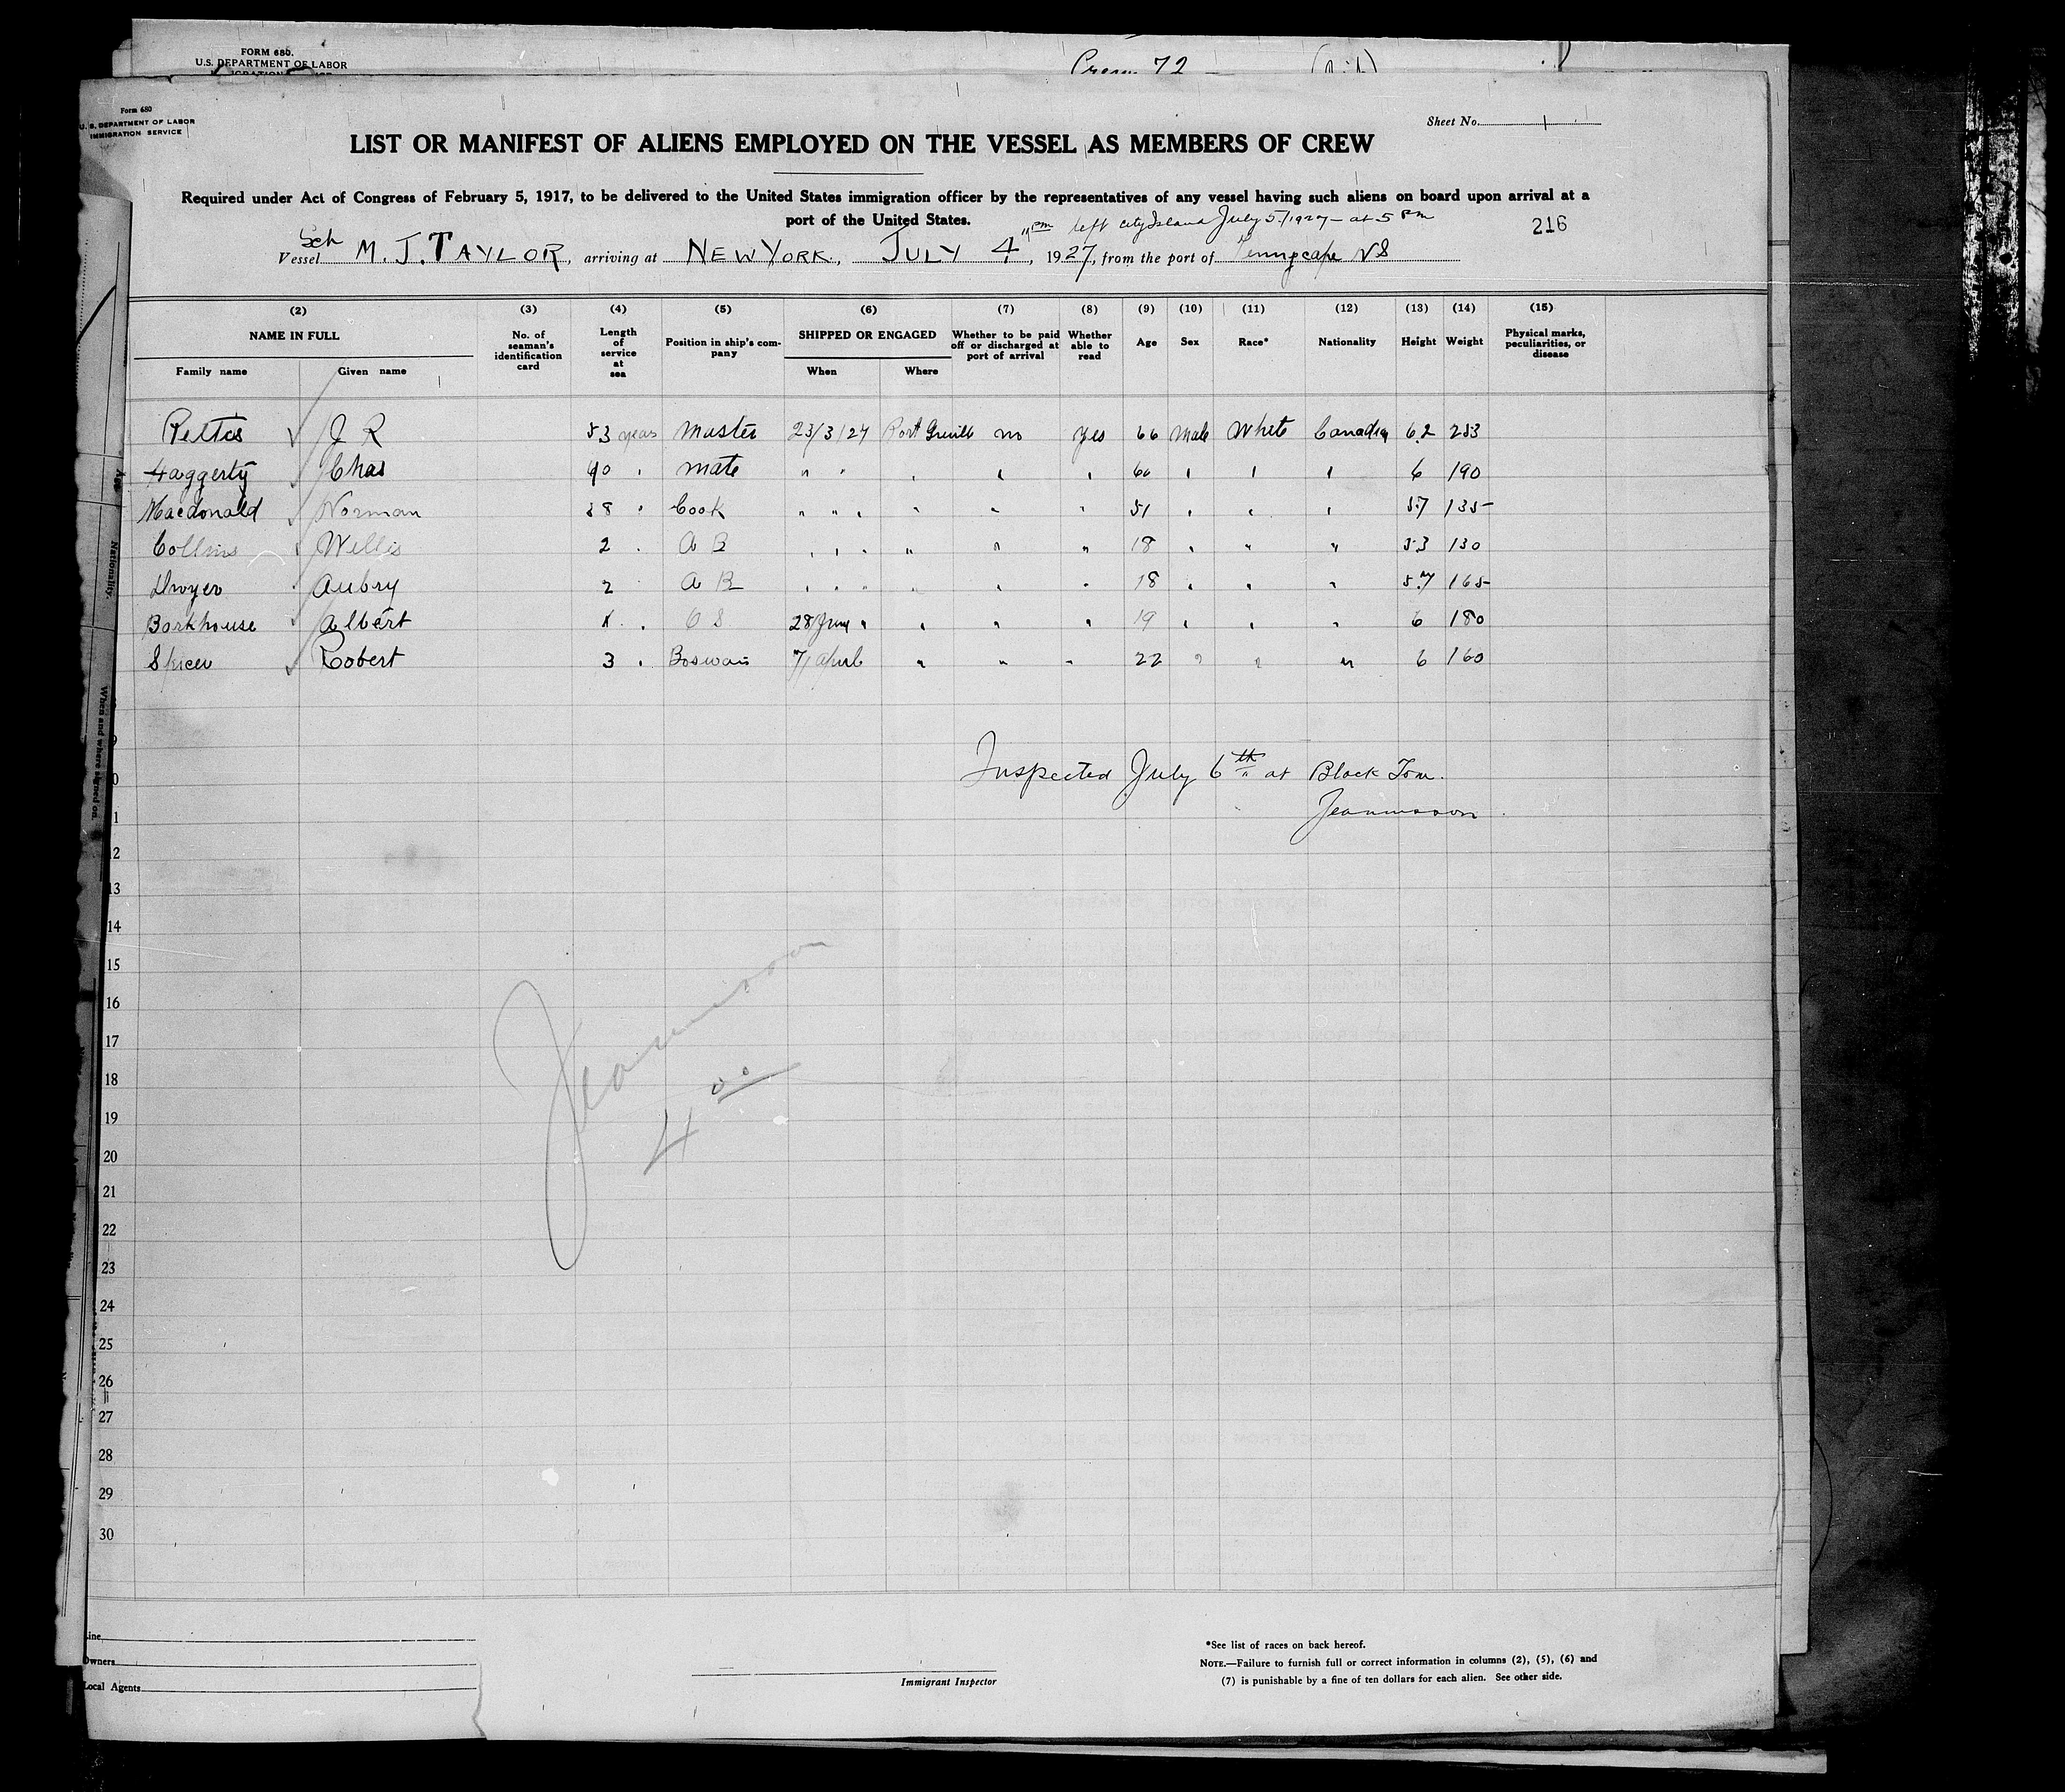 FORM 680.
U.S. DEPARTMENT OF LABOR
Crew 72
Form 680
U. S. DEPARTMENT OF LABOR
IMMIGRATION SERVICE
Sheet No. 1
LIST OR MANIFEST OF ALIENS EMPLOYED ON THE VESSEL AS MEMBERS OF CREW
Required under Act of Congress of February 5, 1917, to be delivered to the United States immigration officer by the representatives of any vessel having such aliens on board upon arrival at a
port of the United States.
11 pm left city Island July 5/1927 - at 5 PM
216
Sch
Vessel M. J. TAYLOR, arriving at NEW YORK, JULY 4, 1927, from the port of Tennycape NS
(2) (3) (4) (5) (6) (7) (8) (9) (10) (11) (12) (13) (14) (15)
NAME IN FULL No. of seaman's identification card Length of service at sea Position in ship's company SHIPPED OR ENGAGED Whether to be paid off or discharged at port of arrival Whether able to read Age Sex Race* Nationality Height Weight Physical marks, peculiarities, or disease
Family name Given name When Where
J R 53 years Master 23/3/27 Port Greville no yes 66 Male White Canadian 6.2 253
Haggerty Chas 40 " mate " " " " " 60 " " " 6 190
Macdonald Norman 38 " Cook " " " " " " 51 " " " 5.7 135
Collins Willis 2 " A B " " " " " " 18 " " " 5.3 130
Dwyer Aubry 2 A B " " " " " " 18 " " " 5.7 165
Borkhouse Albert " O S 28/June " " " " 19 " " " 6 180
Spicer Robert 3 " Boswain 7/April " " " 22 " " " 6 160
Inspected July 6th at Black Tom.
9
0
1
12
13
14
15
16
17
18
19
20
21
22
23
24
25
26
27
28
29
30
4 00
Nationality.
When and where signed on.
Line
Owners
Local Agents
Immigrant Inspector
*See list of races on back hereof.
NOTE.—Failure to furnish full or correct information in columns (2), (5), (6) and
(7) is punishable by a fine of ten dollars for each alien. See other side.